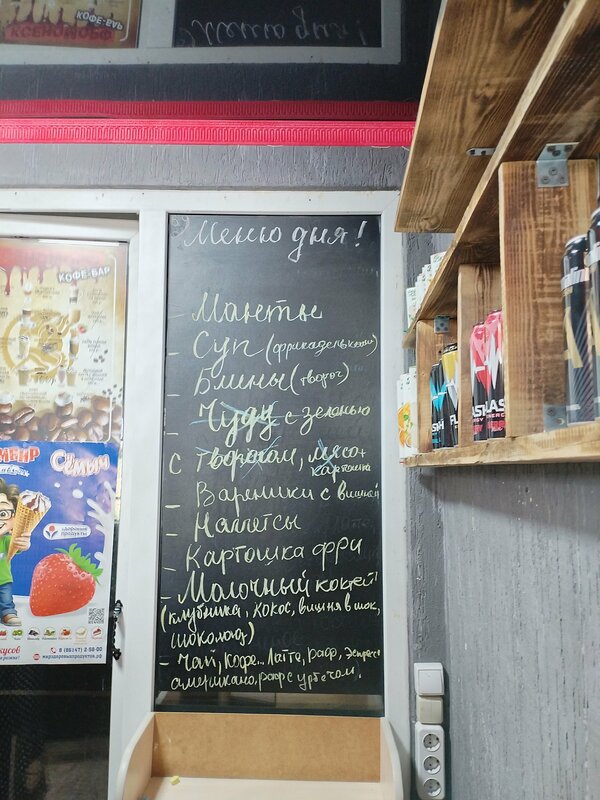 КОФЕ-БАР
Меню дня!
- Манты
- Суп (фрикадельковый)
- Блины (творог)
- Чуду с зеленью
с творогом, мясо+
картошка
- Вареники с вишней
- Наггетсы
- Картошка фри
- Молочный коктейл
(клубника, кокос, вишня в шок,
шоколад)
- Чай, Кофе... Латте, раф, эспрессо
американо, раф с урбечом.
КОФЕ-БАР
Семыч
здоровые
продукты
8 (86147) 2-58-00
мирздоровыхпродуктов.рф
FLASH